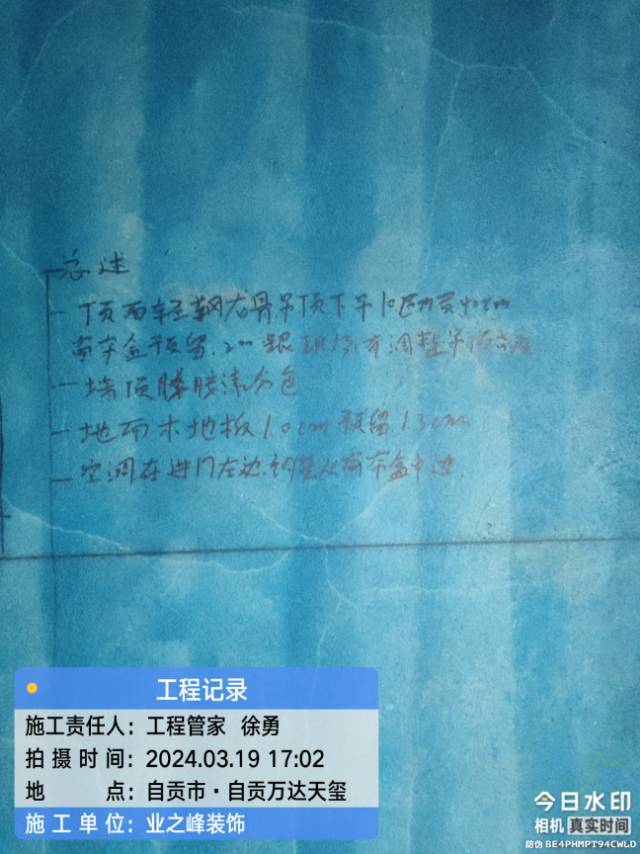 总述
顶面轻钢龙骨吊顶下午10
窗帘盒预留
墙顶 漆分色
地面木地板1.0cm 预留1.3cm
空调在进门左边 从窗帘盒中进
工程记录
施工责任人：工程管家 徐勇
拍摄时间：2024.03.19 17:02
地 点：自贡市·自贡万达天玺
施工单位：业之峰装饰
今日水印
相机 真实时间
防伪 BE4PHMPT94CWLD